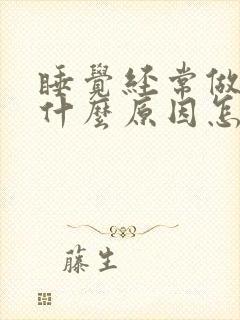 睡覺經常做
什麼原因怎
藤生